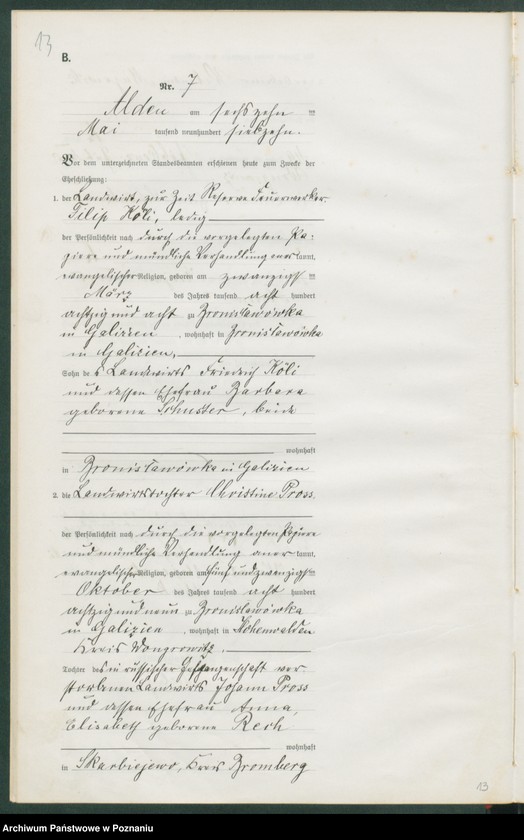 13
B.
Nr. 7
Alden am sechszehn ten
Mai tausend neunhundert siebzehn.
Vor dem unterzeichneten Standesbeamten erschienen heute zum Zwecke der
Eheschließung:
1. der Landwirt, zur Zeit Reserve Feuerwerker
Filip Köli, ledig
der Persönlichkeit nach durch die vorgelegten Pa-
piere und mündliche Verhandlung aner kannt,
evangelischer Religion, geboren am zwanzigs ten
März des Jahres tausend acht hundert
achtzig und acht zu Bronislawówka
in Galizien, wohnhaft in Bronislawówka
in Galizien,
Sohn des Landwirts Friedrich Köli
und dessen Ehefrau Barbara
geborene Schuster, beide
wohnhaft
in Bronislawówka in Galizien
2. die Landwirtstochter Christine Pross
der Persönlichkeit nach durch die vorgelegten Papiere
und mündliche Verhandlung aner kannt,
evangelischer Religion, geboren am fünf und zwanzigs ten
Oktober des Jahres tausend acht hundert
achtzig und neun zu Bronislawówka
in Galizien, wohnhaft in Hohenwalden
Kreis Wongrowitz,
Tochter des in russischer Gefangenschaft ver-
storbenen Landwirts Johann Pross
und dessen Ehefrau Anna,
Elisabeth geborene Rech
wohnhaft
in Skarbiejewo, Kreis Bromberg
13
Archiwum Państwowe w Poznaniu